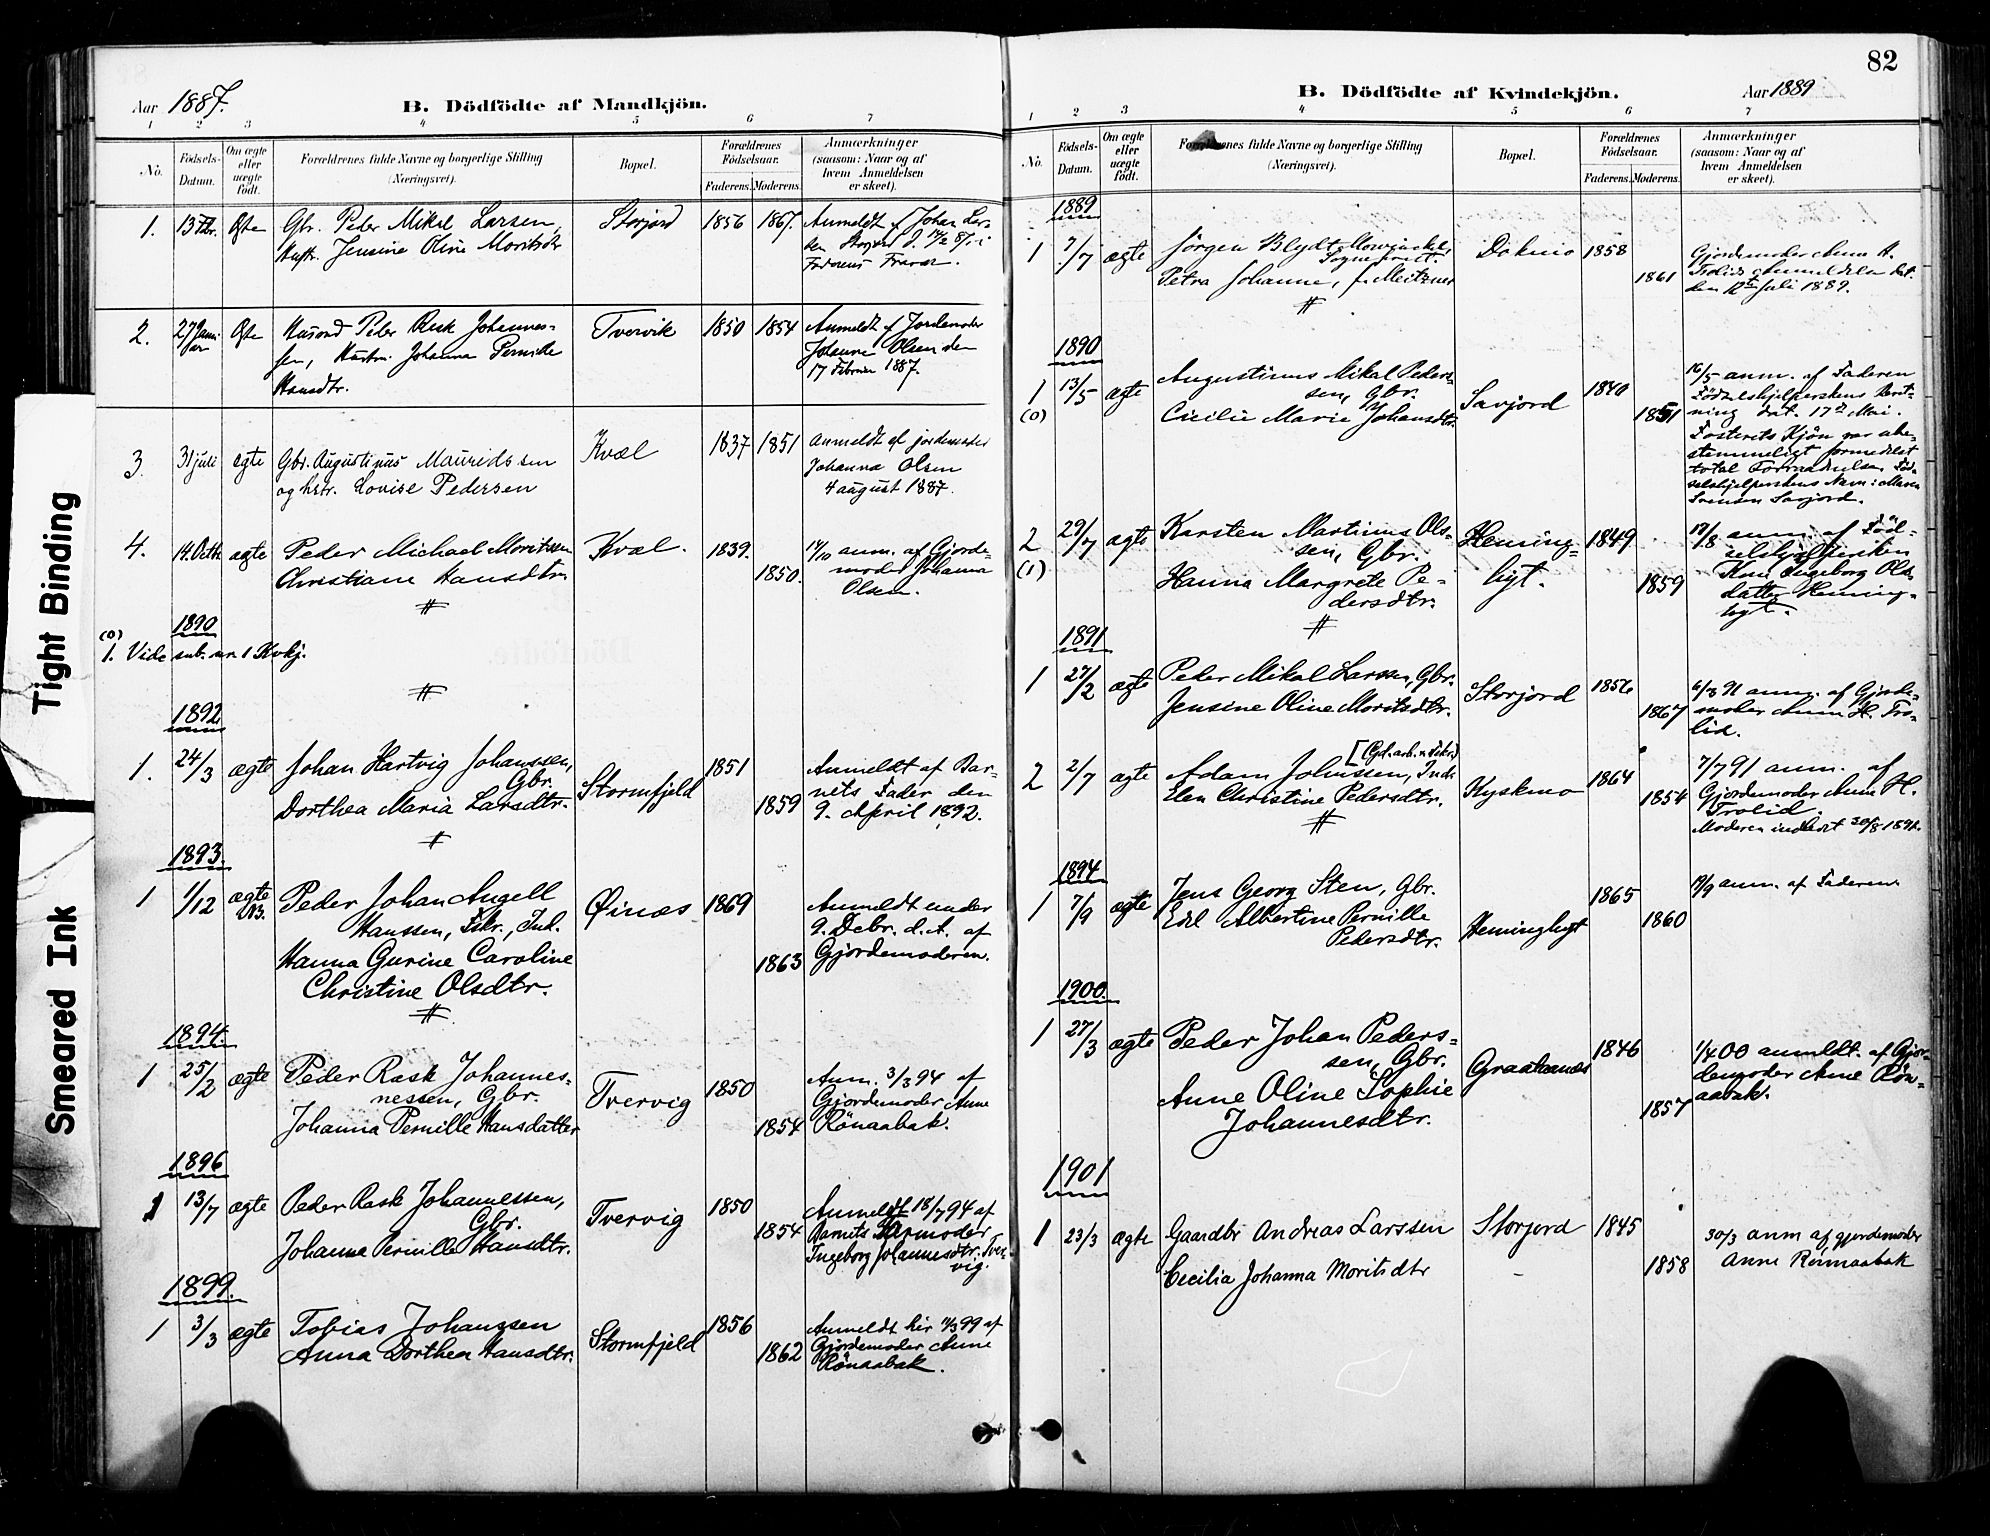 82
Aar 1887.
B. Dödfödte af Mandkjön.
1 2 3 4 5 6 7
No.
Födsels-
Datum.
Om ægte
eller
uægte
født.
Forældrenes fulde Navne og borgerlige Stilling
(Næringsvei).
Bopæl.
Forældrenes
Födselsaar.
Faderens. Moderens.
Anmærkninger
(saasom: Naar og af
hvem Anmeldelsen
er skeet).
1. Gbr. Peder Mikal Larsen, Storjord 1856 1867. Anmeldt af Johan Lar-
Hustr. Jensine Oline Moritsdtr
sen Storjord
Faderens Fravær.
2. 27 Janu-
ar
Husmd Peder Rask Johannes-
sen, Hustru Johanna Pernille
Hansdtr.
Tvervik 1850 1854 Anmeldt af Jordemoder
Johanna Olsen den
17 Februar 1887.
3. 31 juli ægte Gbr. Augustinus Mauridssen
og hstr. Lovise Pedersen
Kvæl 1837 1851 anmeldt af jordemoder
Johanna Olsen
4 august 1887.
4. 14. Octbr ægte Peder Michael Moritssen
Christiane Hansdtr.
Kvæl. 1839. 1850. 17/10 anm. af Gjorde-
moder Johanna
Olsen.
1890
(0)
1. Vide sub. nr. 1 Kvkj.
1892
1. 24/3 ægte Johan Hartvig Johanssen,
Gbr.
Dorthea Maria Larsdtr.
Stormfjeld 1851 1859 Anmeldt af Bar-
nets Fader den
9. April 1892.
1893.
1 1/12 ægte
NB.
Peder Johan Angell
Hanssen, Fskr., Ind.
Hanna Gurine Caroline
Christine Olsdtr.
Øinæs 1869 1863 Anmeldt under
9. Debr. d. A. af
Gjordemoderen.
1894.
1 25/2 ægte Peder Rask Johannes-
nessen, Gbr.
Johanna Pernille Hansdatter
Tvervig 1850 1854 Anm. 3/3 94 af
Gjordemoder Anne
Rönaabak.
1896
1 13/7 ægte Peder Rask Johannessen,
Gbr.
Johanna Pernille Hansdtr.
Tvervig 1850 1854 Anmeldt 18/7 94 af
Barnets
Ingeborg Johannesdtr. Tver-
vig.
1899.
1 3/3 ægte Tobias Johanssen
Anna Dorthea Hansdtr.
Stormfjeld 1856 1862 Anmeldt hir 11/3 99 af
Gjordemoder Anne
Rönaabak.
B. Dödfödte af Kvindekjön.
Aar 1889
1 2 3 4 5 6 7
No.
Födsels-
Datum.
Om ægte
eller
uægte
født.
Forældrenes fulde Navne og borgerlige Stilling
(Næringsvei).
Bopæl.
Forældrenes
Födselsaar.
Faderens. Moderens.
Anmærkninger
(saasom: Naar og af
hvem Anmeldelsen
er skeet).
1889
1 7/7 ægte Jörgen Blydt Mowinckel,
Sognepræst.
Petra Johanne, f. Meitzner
Dokmo 1858 1861 Gjordemoder Anna H.
Trolids Anmeldelse dat.
den 12te Juli 1889.
1890
1
(0)
13/5 ægte Augustinus Mikal Peders-
sen, Gbr.
Cicilie Marie Johansdtr.
Savjord 1840 1851 16/5 anm. af Faderen
Födselshjelperskens Beret-
ning dat. 17de Mai.
Fosterets Kjön var ube-
stemmeligt formedelst
total Forraadnelse. Föd-
selshjelperskens Navn: Maren
Svensen Savjord.
2
(1)
29/7 ægte Karsten Martinus Ols-
sen, Gbr.
Hanna Margrete Pe-
dersdtr.
Heming-
hyt. 1849 1859 17/8 anm. af Föd-
selshjelpersken
Kone Ingeborg Ols-
datter Heming-
hyt.
1891
1 27/2 ægte Peder Mikal Larssen, Gbr.
Jensine Oline Moritsdtr.
Storjord 1856 1867 6/3 91 anm. af Gjorde-
moder Anna H. Tro-
lid.
2 2/7 ægte Adam Johnssen, Ind.
[Gd.arb. & Fskr.]
Elen Christine Pedersdtr.
Kyskmo 1864 1854 7/7 91 anm. af
Gjordemoder Anna H.
Trolid.
1894
1 7/9 ægte Jens Georg Sten, Gbr.
Edel Albertine Pernille
Pedersdtr.
Heminghyt 1865 1860 19/9 anm. af Faderen.
1900.
1 27/3 ægte Peder Johan Peders-
sen, Gbr.
Anne Oline Sophie
Johannesdtr.
Graatanæs 1846 1857 1/4 00 anmeldt. af Gjor-
demoder Anne Rön-
aabak.
1901
1 23/3 ægte Gaardbr Andreas Larssen
Cecilia Johanna Moritsdtr
Storjord 1845 1858 30/3 anm af gjordemoder
Anne Rönnaabak
Tight Binding
Smeared Ink